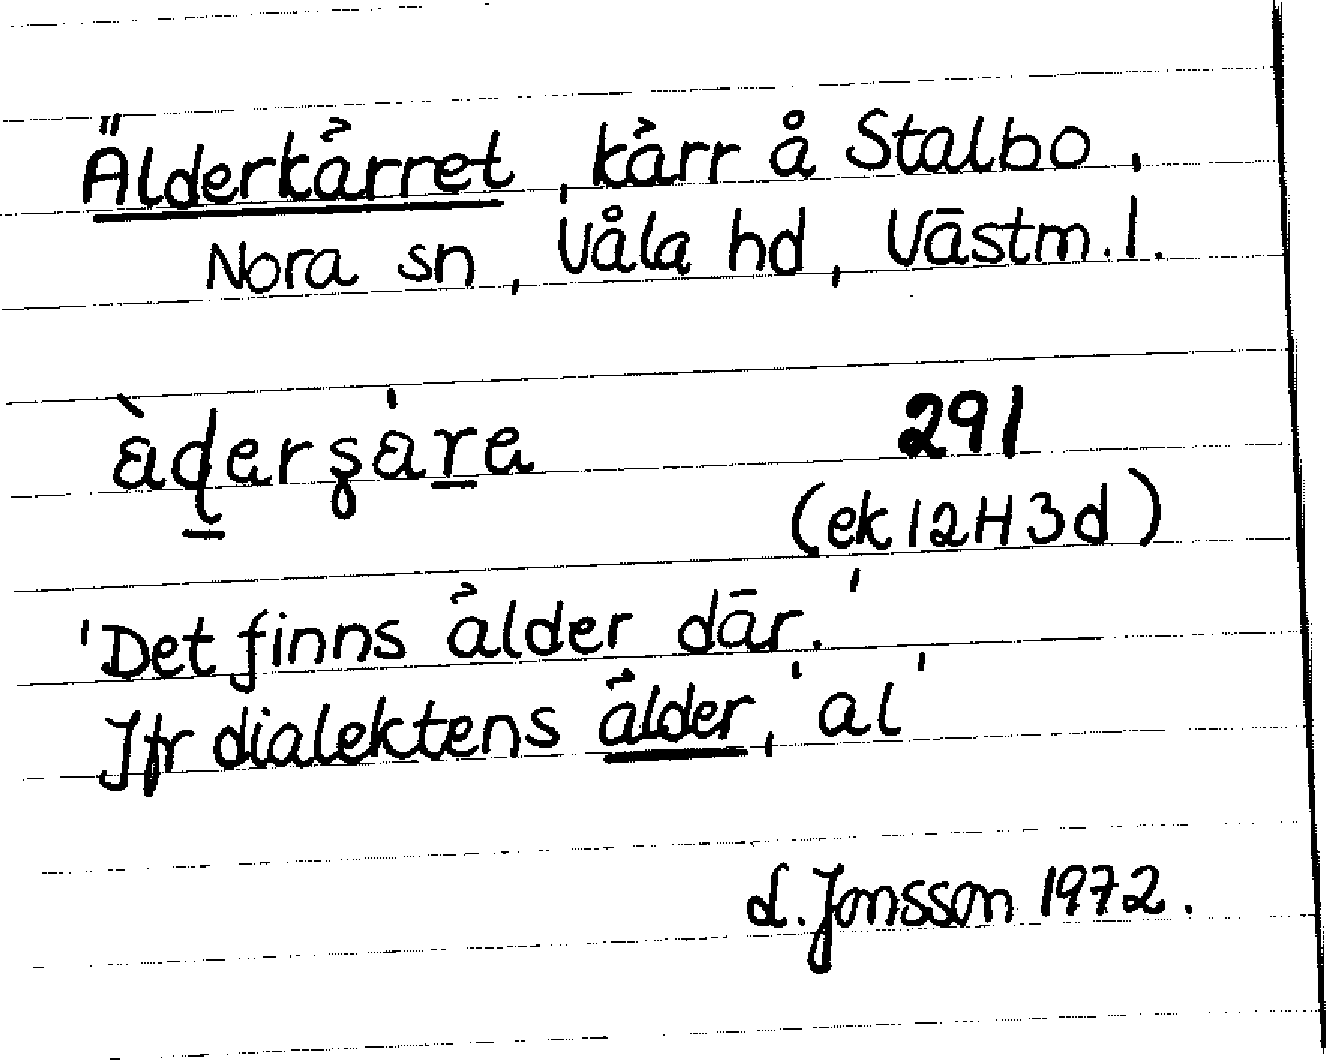 Älderkärret, kärr å Stalbo,
Nora sn, Våla hd, Västm. l.
291
(ek 12H3d)
'Det finns älder där.'
Jfr dialektens älder, 'al'
L. Jonsson 1972.